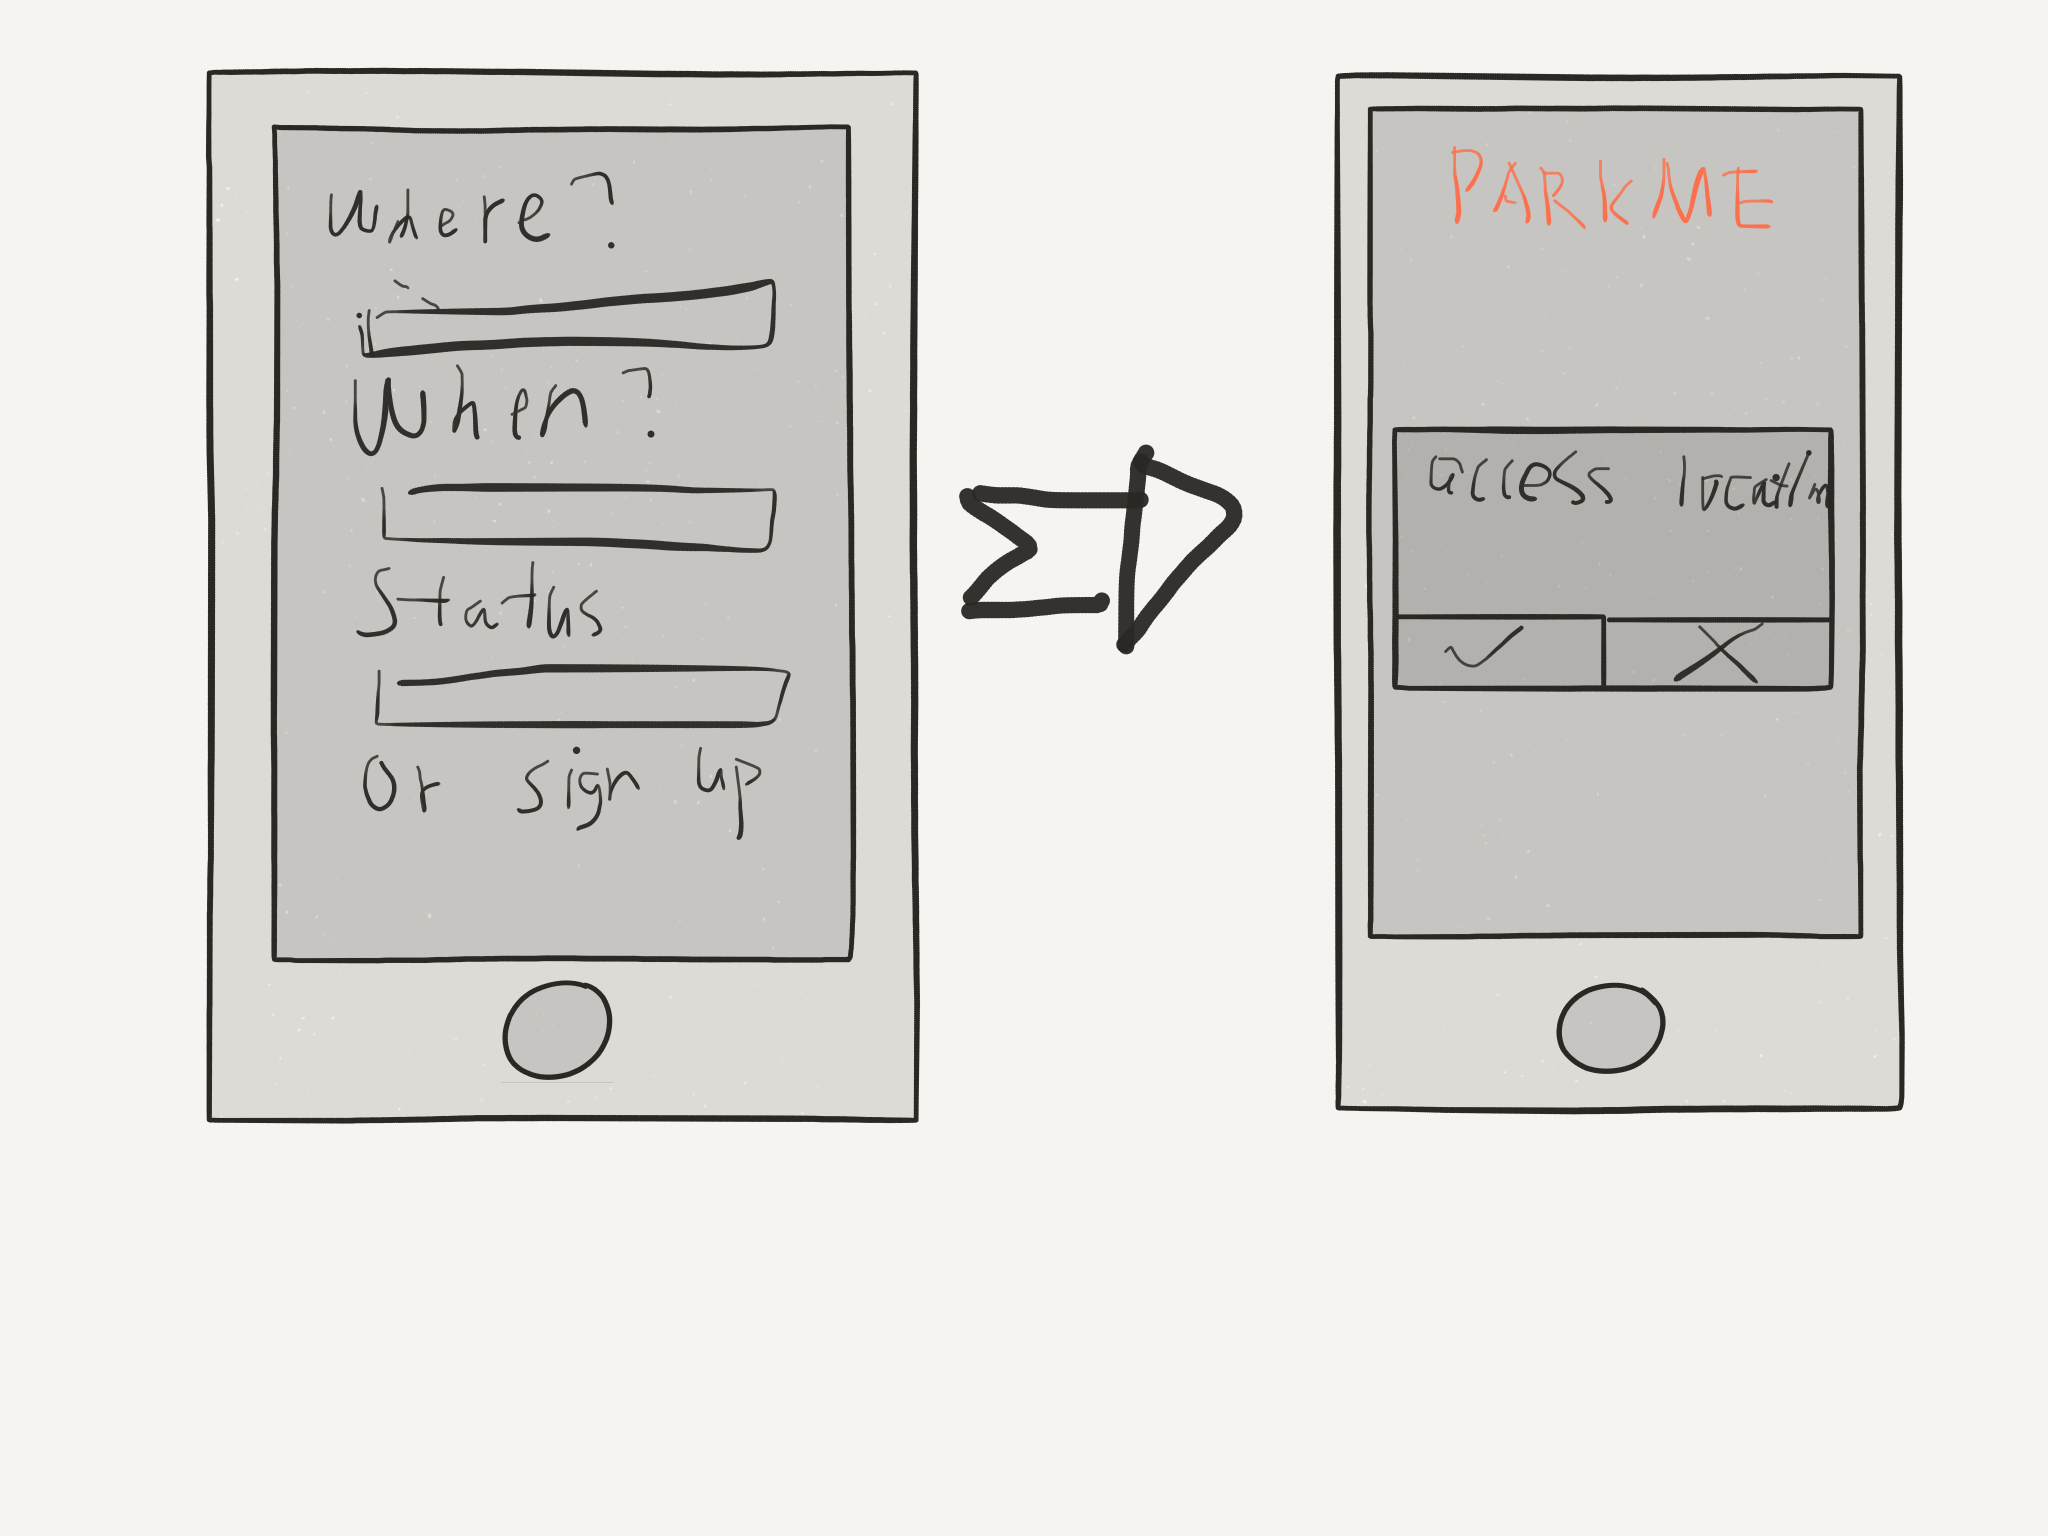 Where?
When?
Status
Or sign up
PARKME
access location